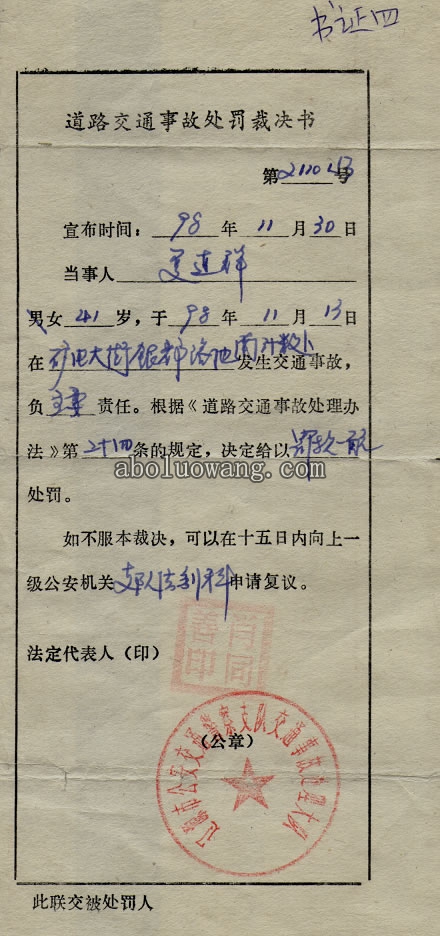 书证四
道路交通事故处罚裁决书
第2110213号
宣布时间：98年11月30日
当事人
男女41岁，于98年11月13日
在矿电大街银都浴池南计数卜发生交通事故，
负主要责任。根据《道路交通事故处理办
法》第二十四条的规定，决定给以罚款一百元
aboluowang.com
处罚。
如不服本裁决，可以在十五日内向上一
级公安机关支队法制科申请复议。
法定代表人（印）
（公章）
市公安交通警察支队交通事故处理大队
此联交被处罚人